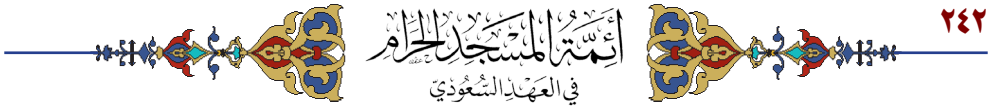 ٢٤٢
أَئِمَّةُ المَسْجِدِ الحَرَامِ
فِي العَهْدِ السُّعُودِيّ